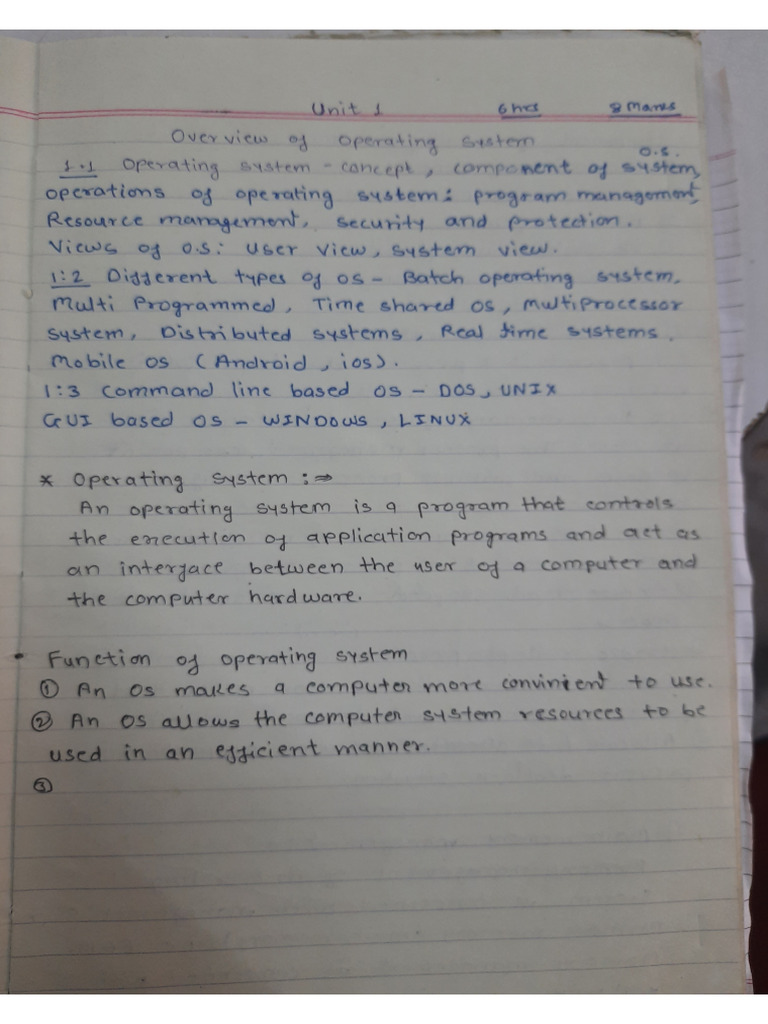 Unit 1 6 hrs 8 Marks
Overview of operating system
1.1 Operating system - concept, component of O.S. system,
operations of operating system: program management,
Resource management, security and protection.
Views of O.S: User view, system view.
1:2 Different types of OS - Batch operating system,
Multi Programmed, Time shared OS, multiprocessor
system, Distributed systems, Real time systems.
Mobile OS (Android, ios).
1:3 Command line based OS - DOS, UNIX
GUI based OS - WINDOWS, LINUX
* Operating system :⇒
An operating system is a program that controls
the execution of application programs and act as
an interface between the user of a computer and
the computer hardware.
• Function of operating system
① An OS makes a computer more convinient to use.
② An OS allows the computer system resources to be
used in an efficient manner.
③